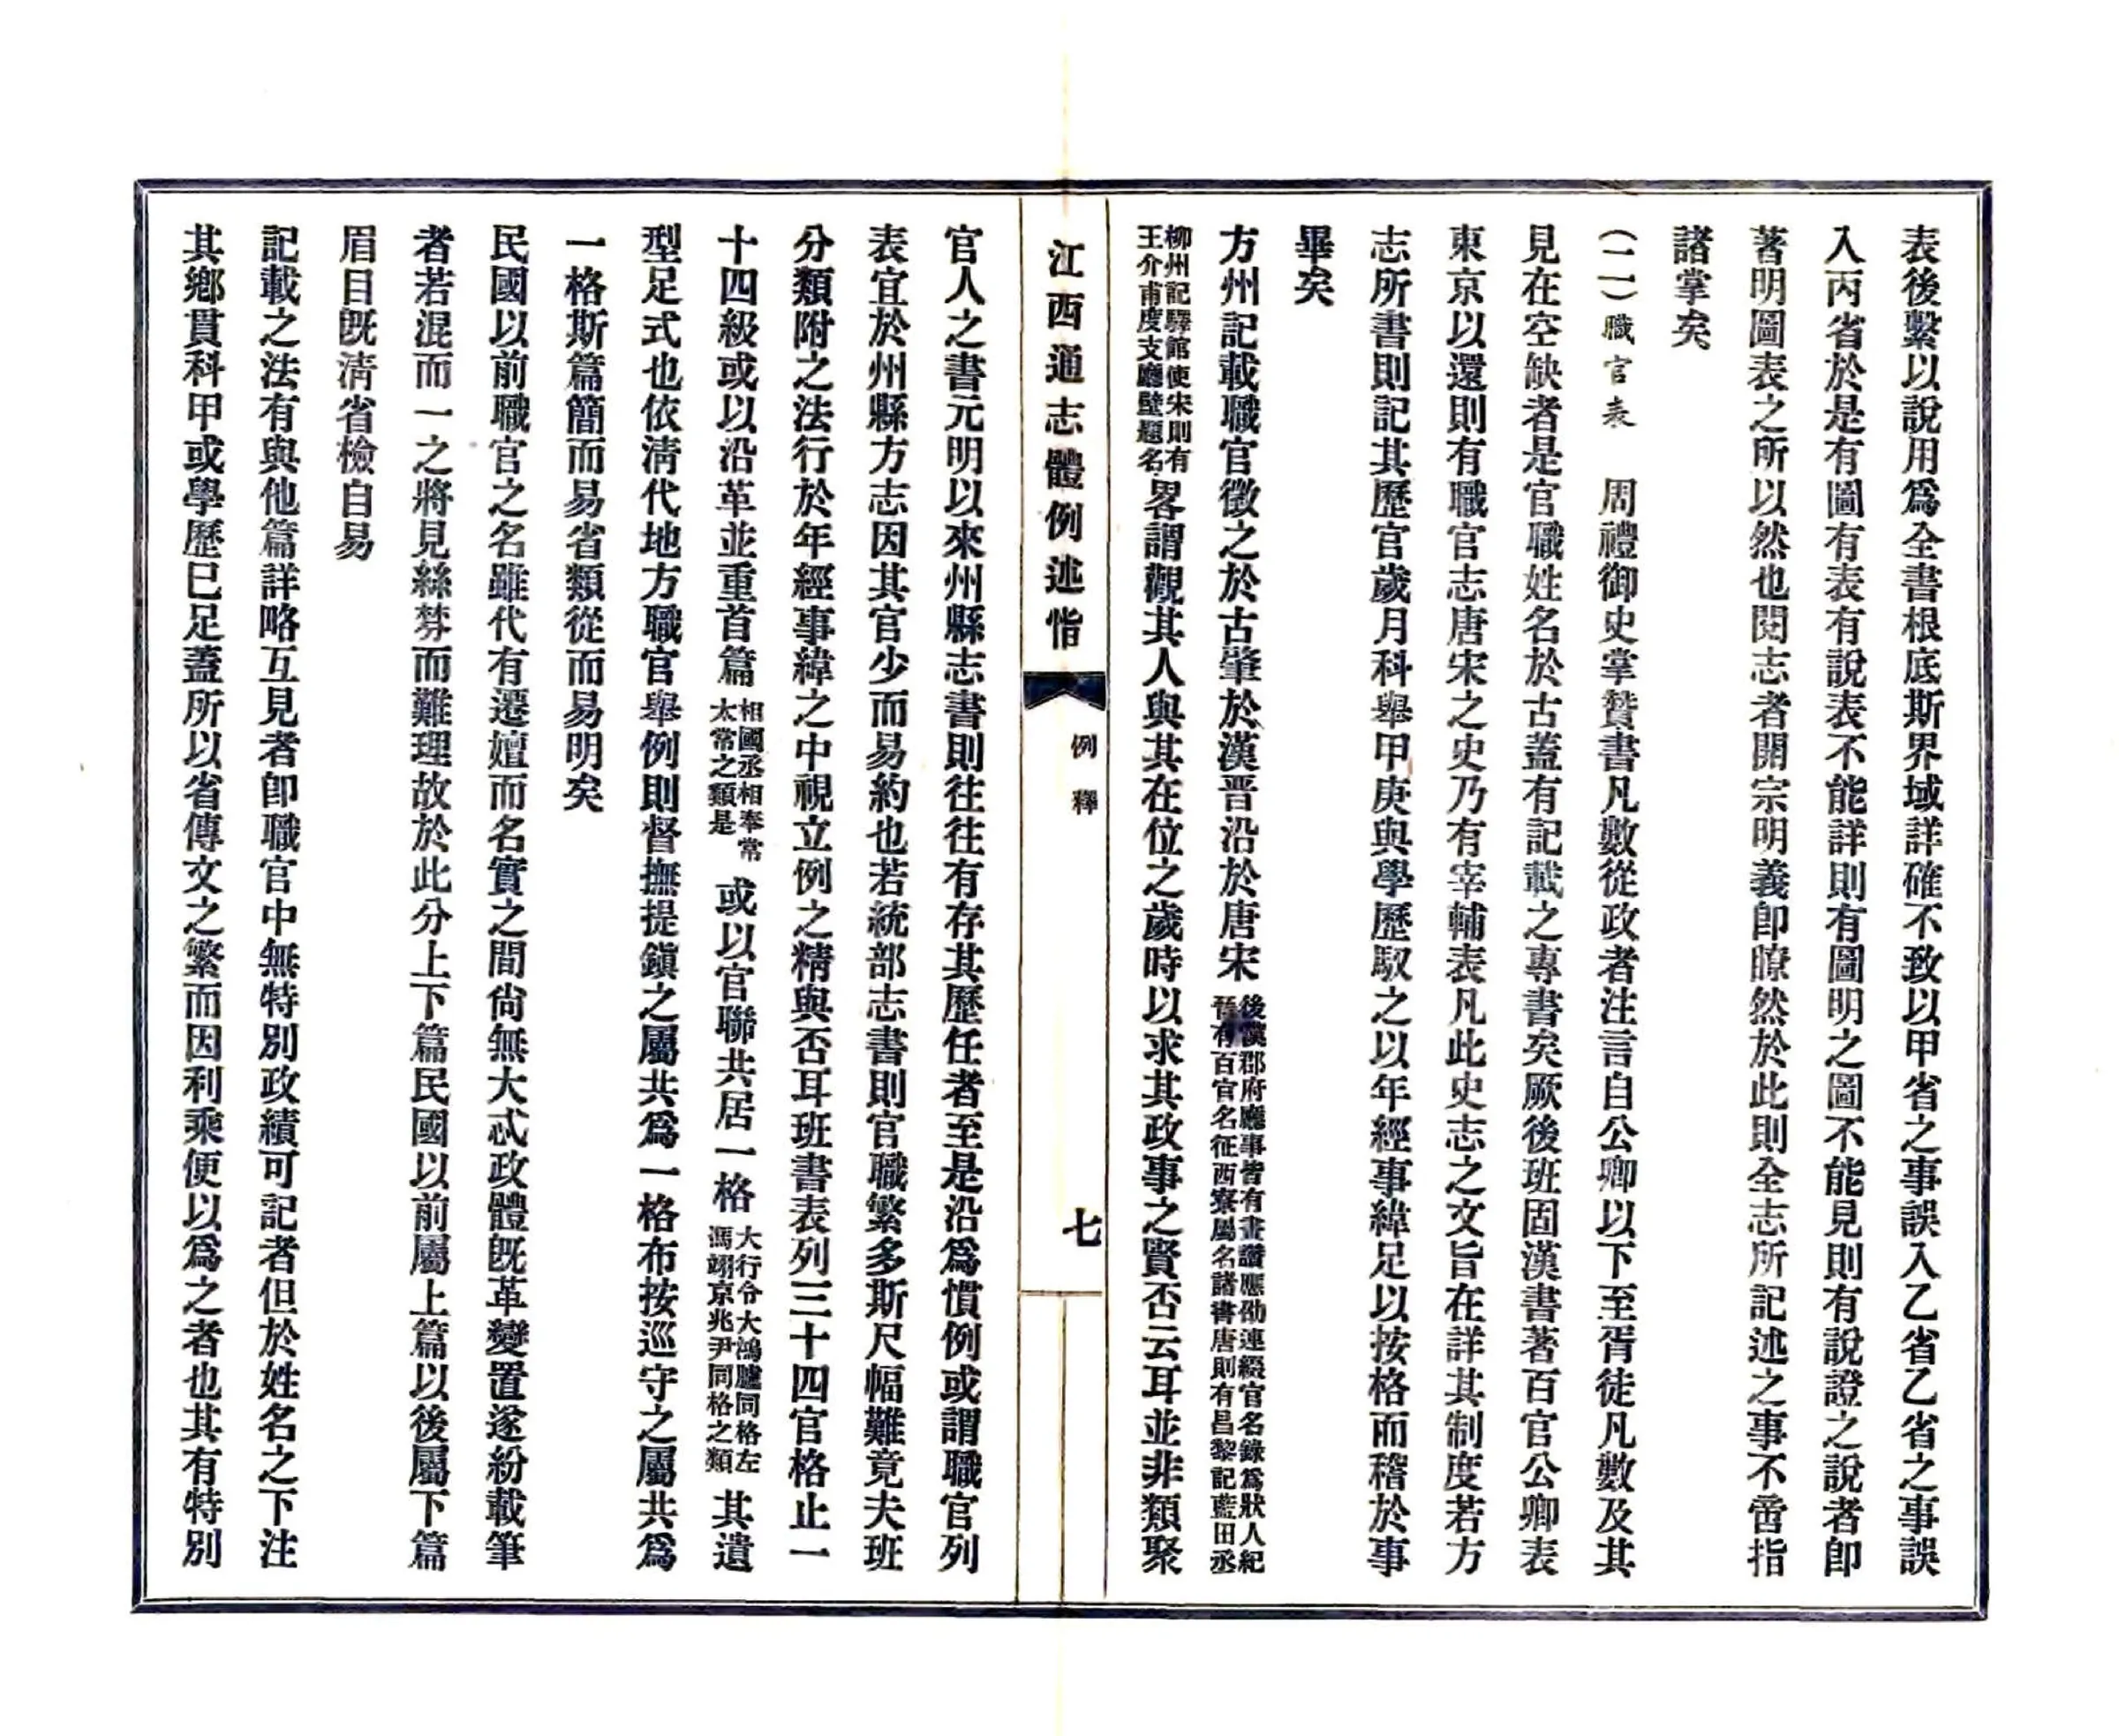 表後繫以說用爲全書根底斯界域詳確不致以甲省之事誤入乙省乙省之事誤
入丙省於是有圖有表有說表不能詳則有圖明之圖不能見則有說證之說者卽
著明圖表之所以然也閱志者開宗明義卽瞭然於此則全志所記述之事不啻指
諸掌矣
(二)職官表 周禮御史掌贊書凡數從政者注言自公卿以下至胥徒凡數及其
見在空缺者是官職姓名於古蓋有記載之專書矣厥後班固漢書著百官公卿表
東京以還則有職官志唐宋之史乃有宰輔表凡此史志之文旨在詳其制度若方
志所書則記其歷官歲月科舉甲庚與學歷馭之以年經事緯足以按格而稽於事
畢矣
方州記載職官徵之於古肇於漢晋沿於唐宋後漢郡府廳事皆有畫讚應劭連綴官名錄爲狀人紀晉有百官名征西寮屬名諸書唐則有昌黎記藍田丞
柳州記驛館使宋則有王介甫度支廳壁題名畧謂觀其人與其在位之歲時以求其政事之賢否云耳並非類聚
江西通志體例述恉
例釋
七
官人之書元明以來州縣志書則往往有存其歷任者至是沿爲慣例或謂職官列
表宜於州縣方志因其官少而易約也若統部志書則官職繁多斯尺幅難竟夫班
分類附之法行於年經事緯之中視立例之精與否耳班書表列三十四官格止一
十四級或以沿革並重首篇相國丞相奉常太常之類是或以官聯共居一格大行令大鴻臚同格左馮翊京兆尹同格之類其遺
型足式也依淸代地方職官舉例則督撫提鎭之屬共爲一格布按巡守之屬共爲
一格斯篇簡而易省類從而易明矣
民國以前職官之名雖代有遷嬗而名實之間尙無大忒政體旣革變置遂紛載筆
者若混而一之將見絲棼而難理故於此分上下篇民國以前屬上篇以後屬下篇
眉目旣淸省檢自易
記載之法有與他篇詳略互見者卽職官中無特別政績可記者但於姓名之下注
其鄕貫科甲或學歷已足蓋所以省傳文之繁而因利乘便以爲之者也其有特別